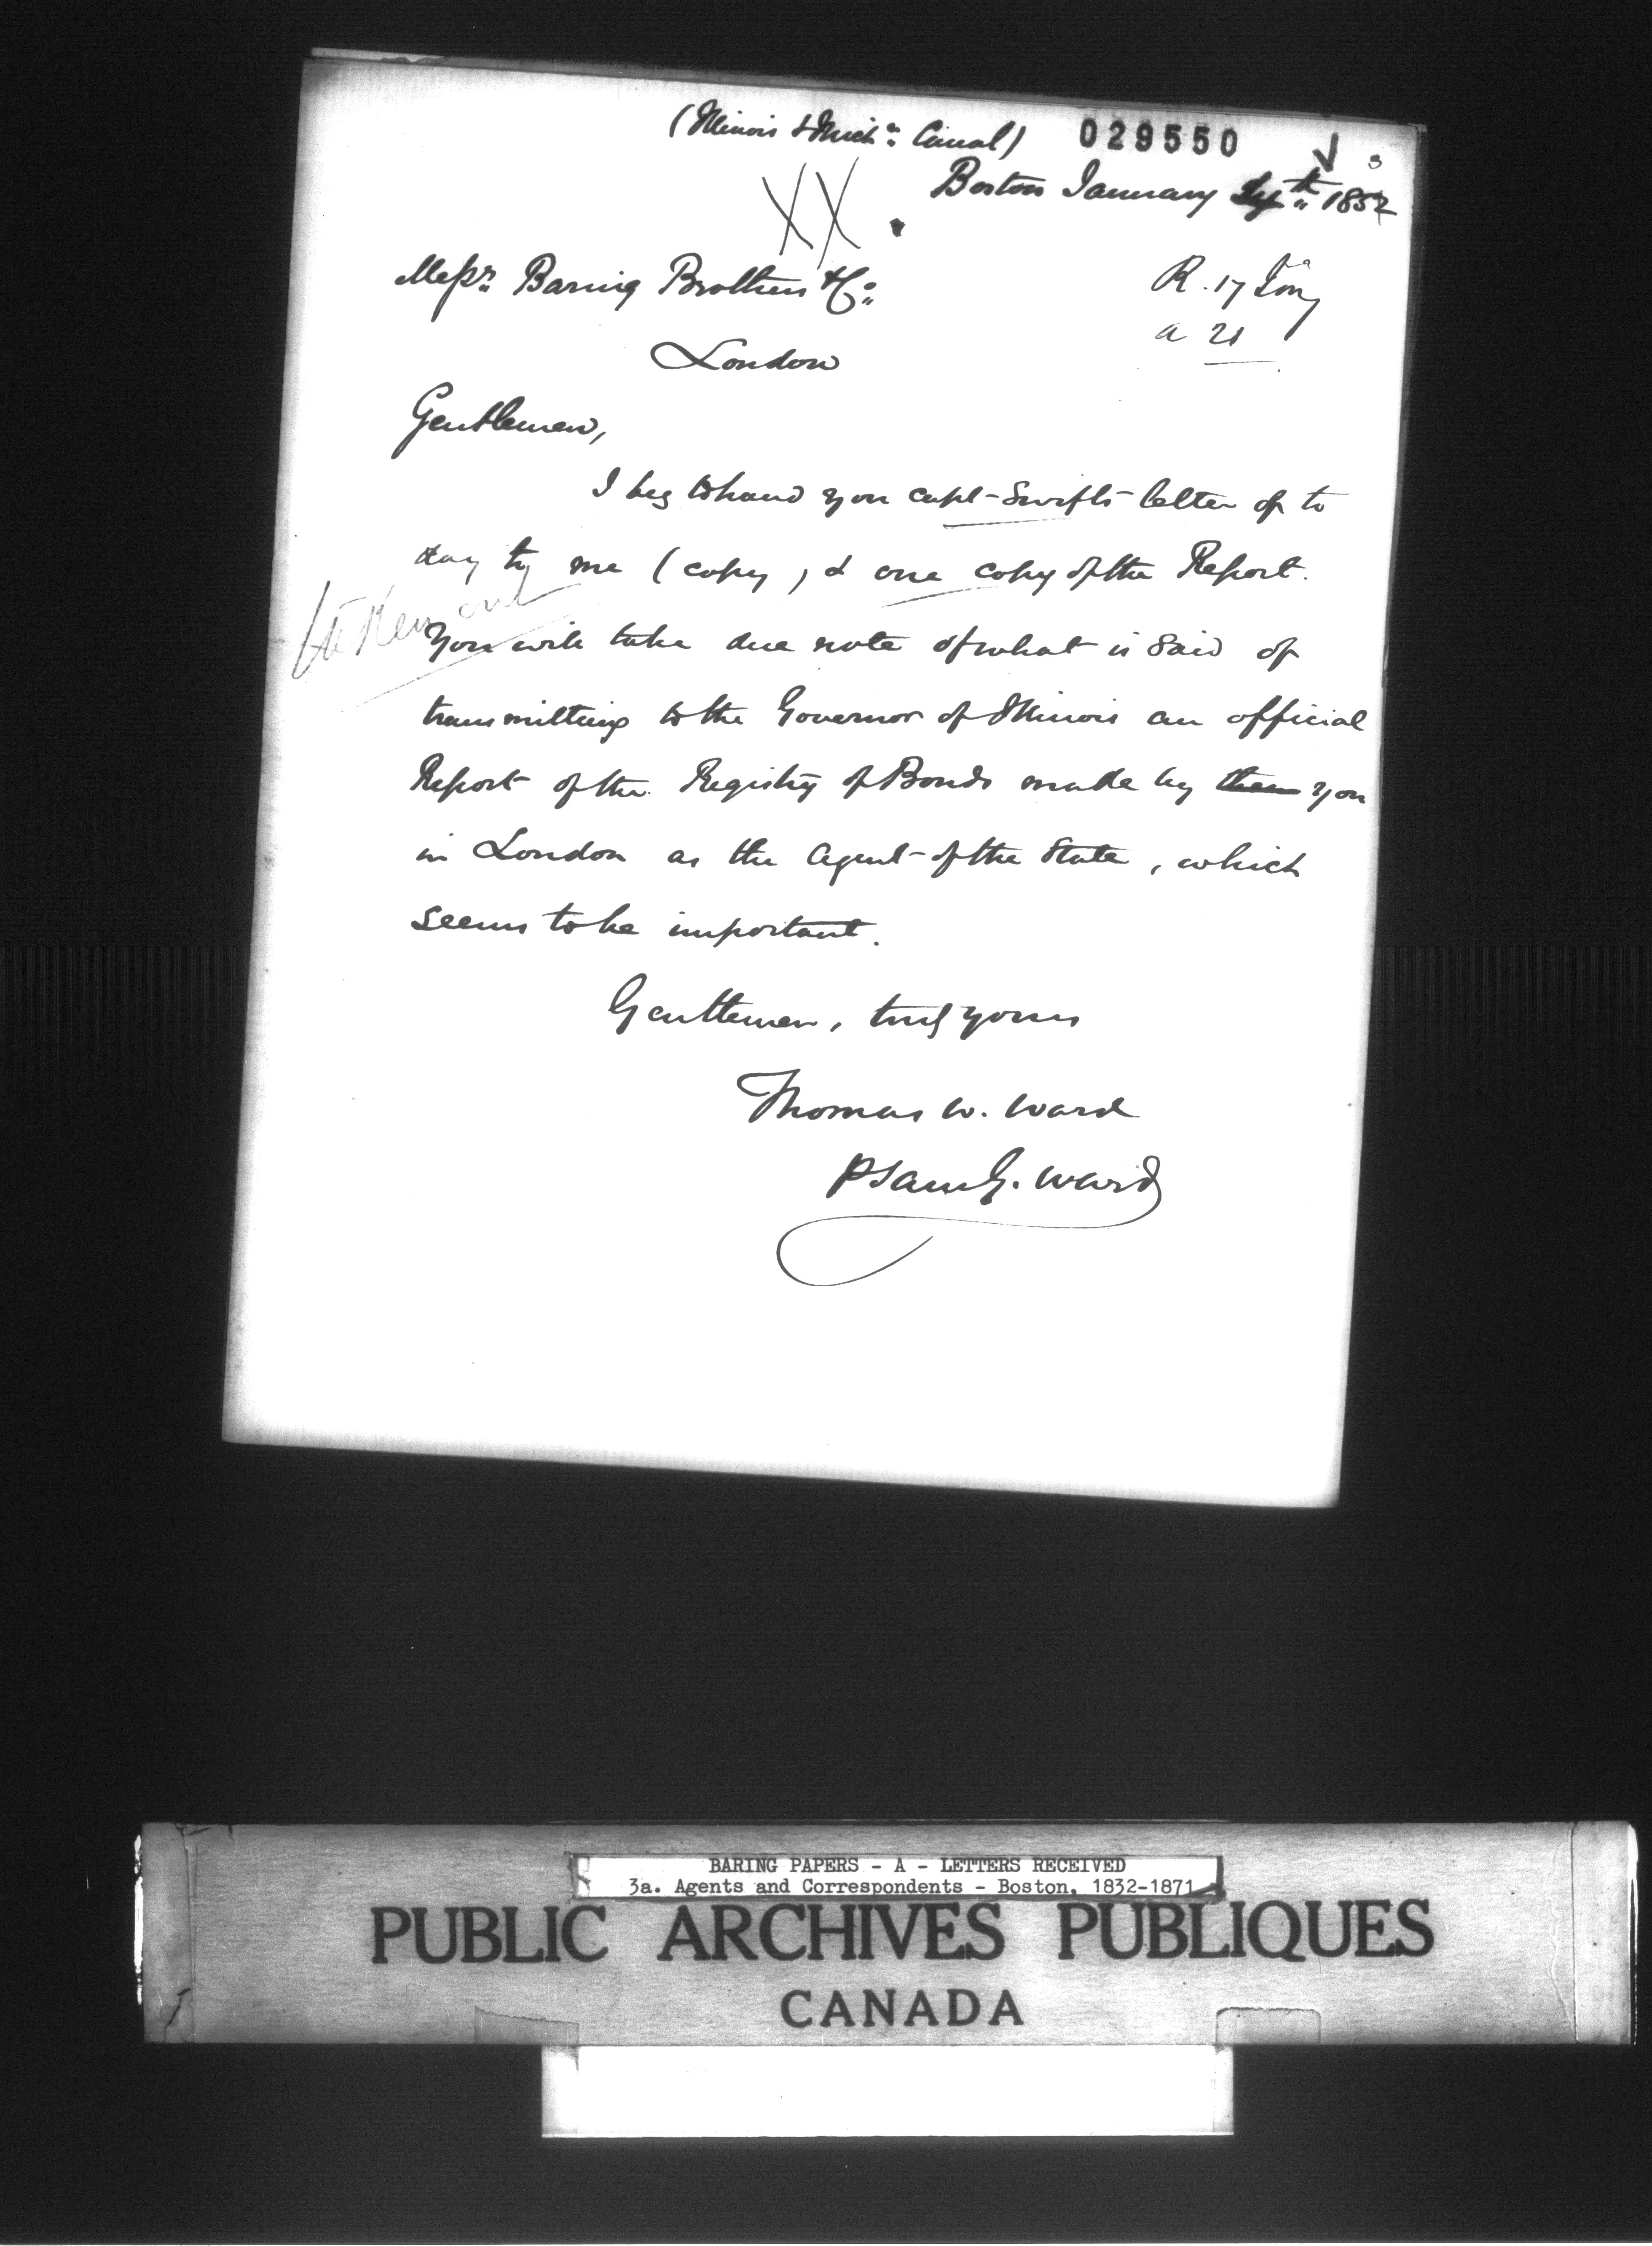 (Illinois & Mich:n Canal) 029550
3
Boston January th 1852
XX
Messrs Baring Brothers & Co:
R. 17 Jany
a 21
London
Gentlemen,
I beg to hand you capt Swift's letter of to
day to me (copy) & one copy of the Report.
You will take due note of what is said of
transmitting to the Governor of Illinois an official
Report of the Registry of Bonds made by them you
in London as the agent of the State, which
seems to be important.
Gentlemen, truly yours
Thomas W. Ward
P Sam G. Ward
BARING PAPERS - A - LETTERS RECEIVED
3a. Agents and Correspondents - Boston, 1832-1871
PUBLIC ARCHIVES PUBLIQUES
CANADA